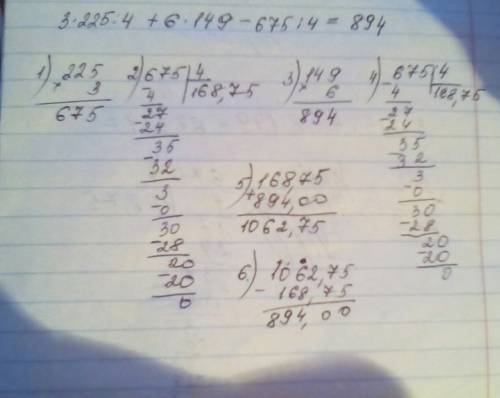 3·225:4 + 6·149 - 675:4 = 894
1) 225
× 3
675
2) 675 | 4
4 | 168,75
27
-24
35
-32
3
-0
30
-28
20
-20
0
3) 149
× 6
894
4) -675 | 4
4 | 168,75
-27
24
35
-32
3
-0
30
-28
20
-20
0
5) 168,75
+894,00
1062,75
6) 1062,75
- 168,75
894,00